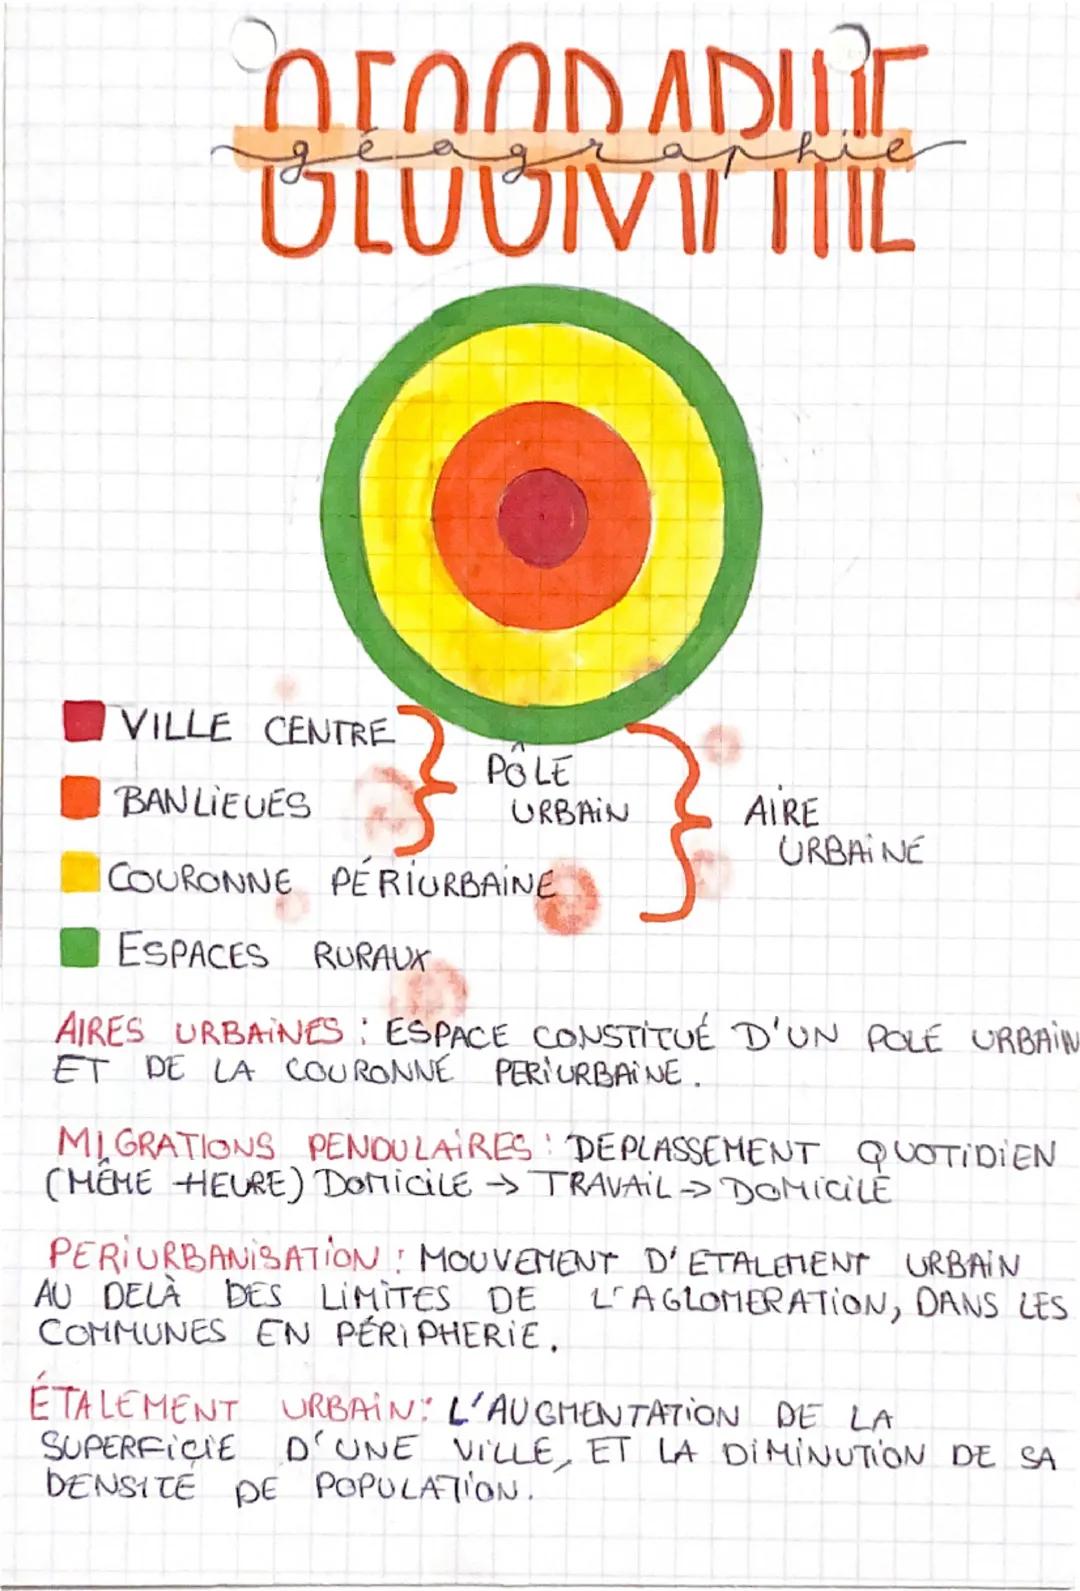 GEOGRAPHIE
géographie
VILLE CENTRE
BANLIEUES
PÔLE
URBAIN
AIRE
URBAINE
COURONNE PÉRIURBAINE
ESPACES RURAUX
AIRES URBAINES : ESPACE CONSTITUÉ D'UN POLE URBAIN
ET DE LA COURONNE PERIURBAINE.
MIGRATIONS PENDULAIRES : DEPLASSEMENT QUOTIDIEN
(MÊME HEURE) DOMICILE → TRAVAIL → DOMICILE
PERIURBANISATION : MOUVEMENT D'ETALEMENT URBAIN
AU DELÀ DES LIMITES DE L'AGLOMERATION, DANS LES
COMMUNES EN PÉRIPHERIE.
ÉTALEMENT URBAIN : L'AUGMENTATION DE LA
SUPERFICIE D'UNE VILLE, ET LA DIMINUTION DE SA
DENSITÉ DE POPULATION.